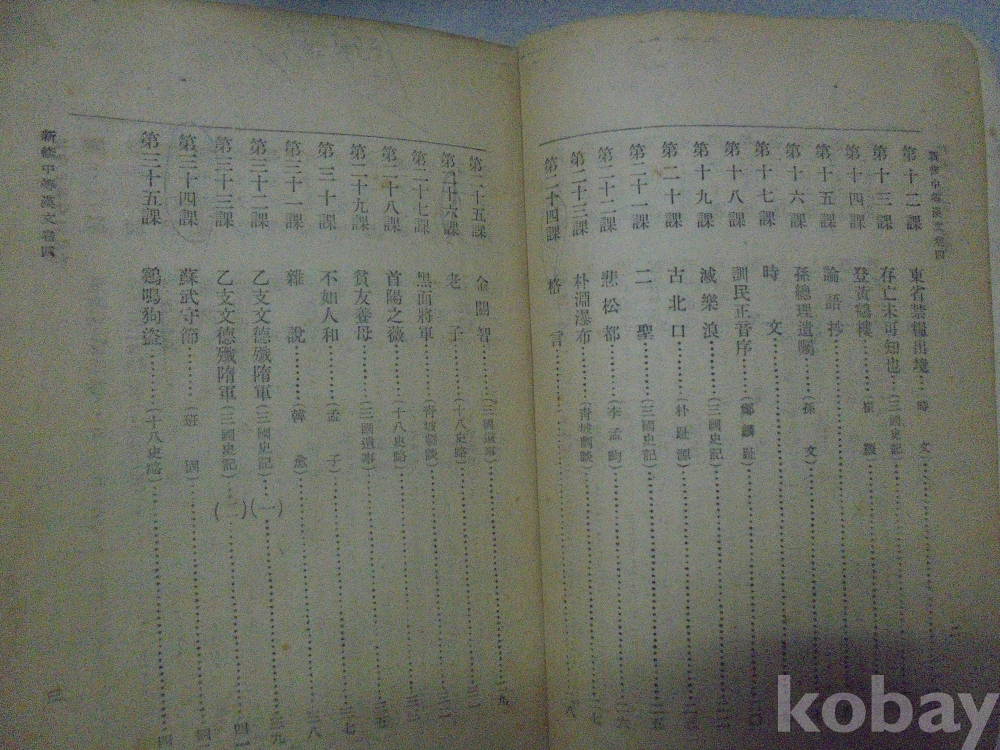 新修中等漢文卷四
第十二課 東省禁糧出境 (時 文)
第十三課 存亡未可知也 (三國史記)
第十四課 登黃鶴樓 (崔 顥)
第十五課 論語抄
第十六課 孫總理遺囑 (孫 文)
第十七課 時 文
第十八課 訓民正音序 (鄭麟趾) 二〇
第十九課 滅樂浪 (三國史記)
第二十課 古北口 (朴趾源)
第二十一課 二 聖 (三國史記) 二五
第二十二課 悲松都 (李孟畇) 二六
第二十三課 朴淵瀑布 (青坡劇談)
第二十四課 格 言
第二十五課 金閼智 (三國遺事)
第二十六課 老 子 (十八史略)
第二十七課 黑面將軍 (青坡劇談)
第二十八課 首陽之薇 (十八史略) 三五
第二十九課 貧友養母 (三國遺事) 三七
第三十課 不如人和 (孟 子) 三八
第三十一課 雜 說 (韓 愈) 三九
第三十二課 乙支文德殲隋軍 (三國史記) (一)
第三十三課 乙支文德殲隋軍 (三國史記) (二)
第三十四課 蘇武守節 (班 固)
第三十五課 鷄鳴狗盜 (十八史略)
新修中等漢文卷四
三
kobay